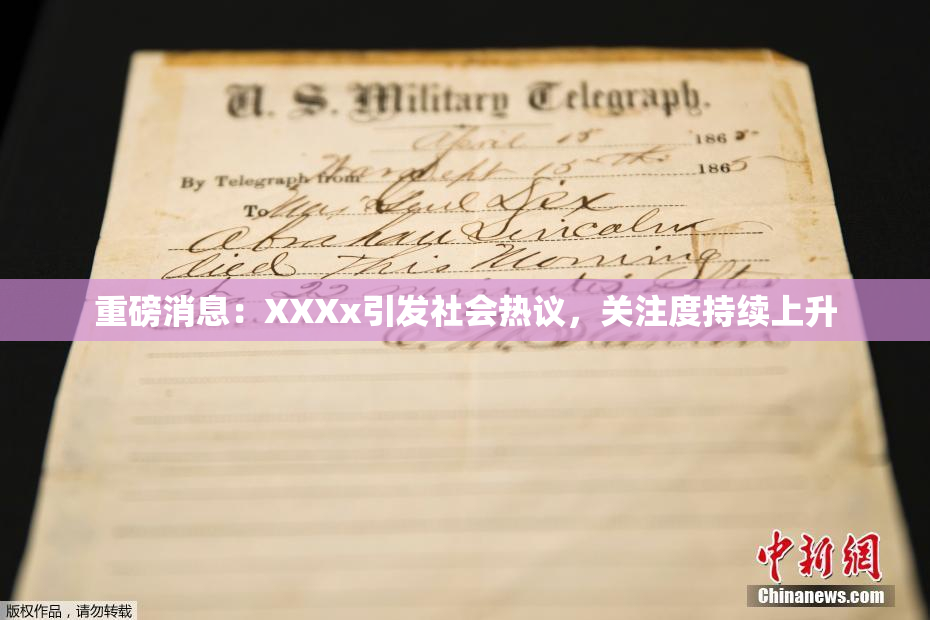 U. S. Military Telegraph.
April 15 1865
By Telegraph from War Dept 15th 1865
To Maj Genl Dix
Abraham Lincoln
died This Morning
at 22 minutes after
重磅消息：XXXx引发社会热议，关注度持续上升
E. M. Stanton
中新网
Chinanews.com
版权作品，请勿转载